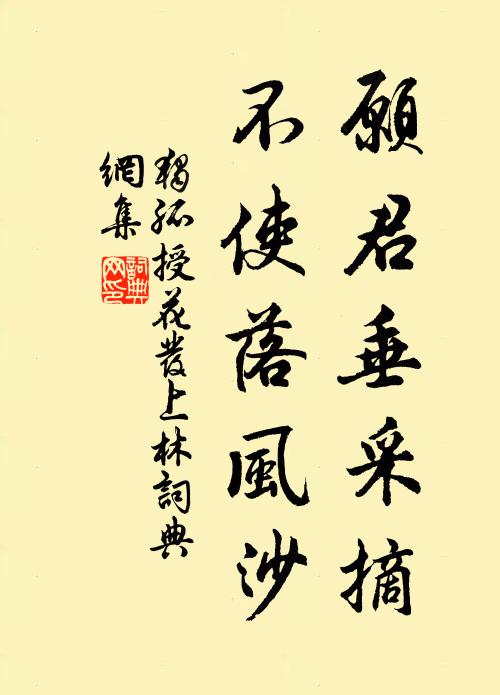 願君垂采摘
不使落風沙
獨孤授花發上林詞典
網集
詞典網印